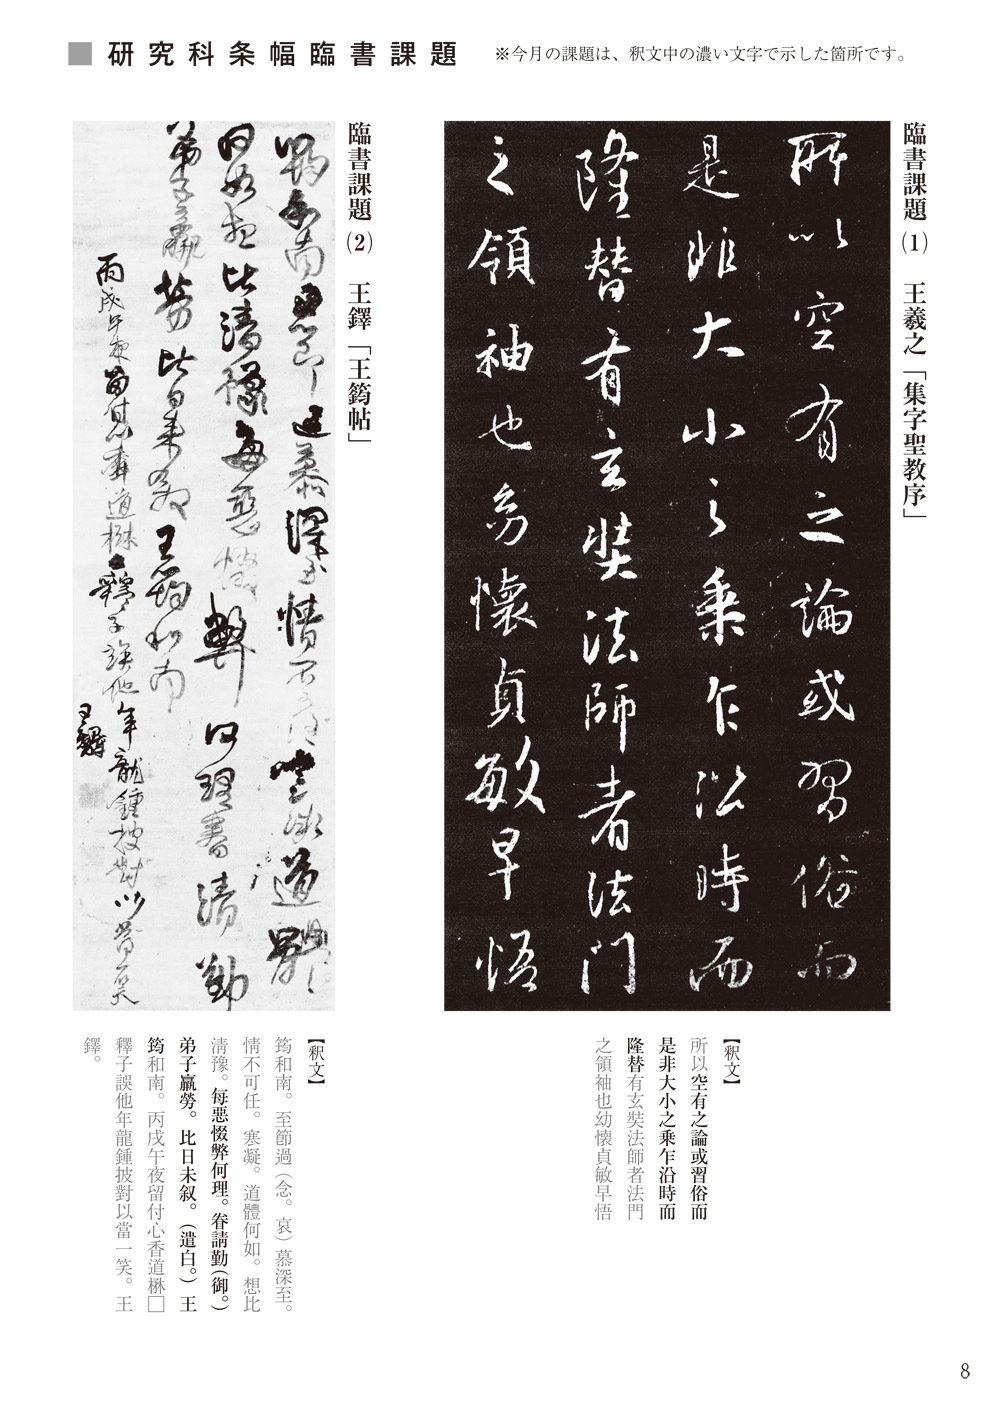 ■研究科条幅臨書課題
※今月の課題は、釈文中の濃い文字で示した箇所です。
臨書課題(1) 王羲之「集字聖教序」
所以空有之論或習俗而
是非大小之乗乍沿時而
隆替有玄奘法師者法門
之領袖也幼懐貞敏早悟
【釈文】
所以空有之論或習俗而
是非大小之乗乍沿時而
隆替有玄奘法師者法門
之領袖也幼懐貞敏早悟
臨書課題(2) 王鐸「王筠帖」
【釈文】
筠和南。至節過(念。哀)慕深至。
情不可任。寒凝。道體何如。想比
淸豫。每惡惙弊何理。眷請勤(御。)
弟子羸勞。比日未叙。(遣白。)王
筠和南。丙戌午夜留付心香道楙□
釋子誤他年龍鍾披對以當一笑。王
鐸。
8